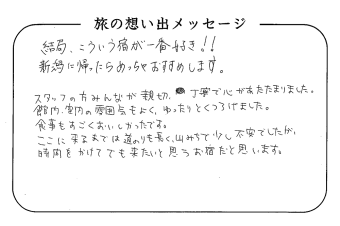 旅の想い出メッセージ
結局、こういう宿が一番好き!!
新潟に帰ったらめっちゃおすすめします。
スタッフの方みんなが親切、丁寧で心があたたまりました。
館内、室内の雰囲気もよく、ゆったりとくつろげました。
食事もすごくおいしかったです。
ここに来るまでは道のりも長く、山みちで少し不安でしたが、
時間をかけてでも来たいと思うお宿だと思います。